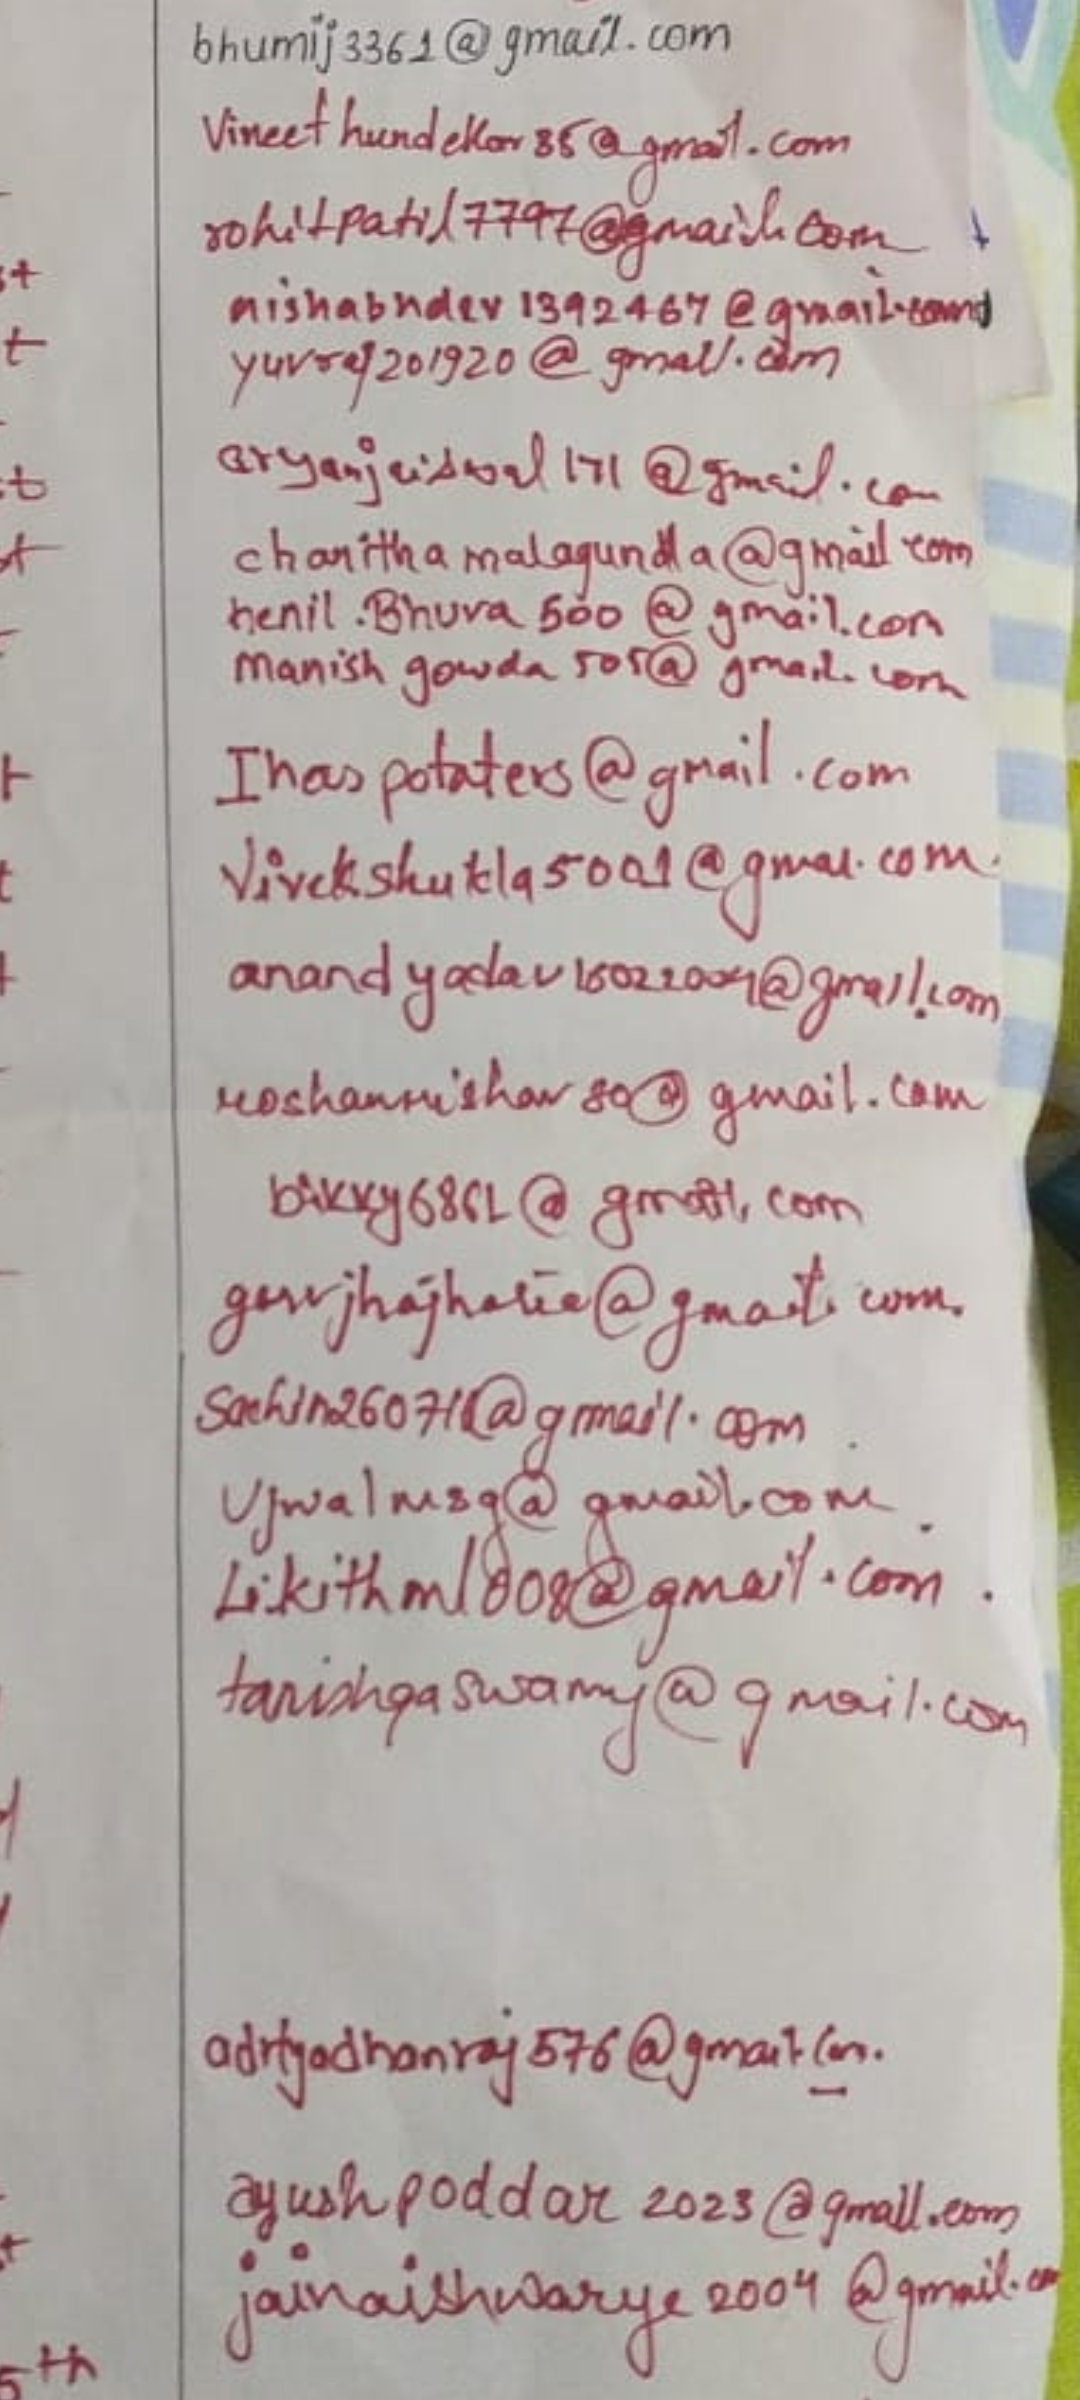 bhumij3361@gmail.com
Vineethundekar35@gmail.com
rohitpatil7797@gmail.com
st
nishabhdev1392467@gmail.com
t
yuvraj201920@gmail.com
aryanjaiswal171@gmail.com
charithamalagundla@gmail.com
henil.Bhuva500@gmail.com
Manishgowda505@gmail.com
Ihaspotaters@gmail.com
t
Vivekshukla5001@gmai.com.
anandyadav16022004@gmail.com
roshannishar80@gmail.com
bikky6861@gmail.com
@gmail.com.
Sachin260711@gmail.com
Ujwalmsg@gmail.com
Likithml008@gmail.com.
tanishqaswamy@gmail.com
adityadhanraj576@gmail.com.
ayushpoddar2023@gmail.com
jainaishwarye2004@gmail.co
5th